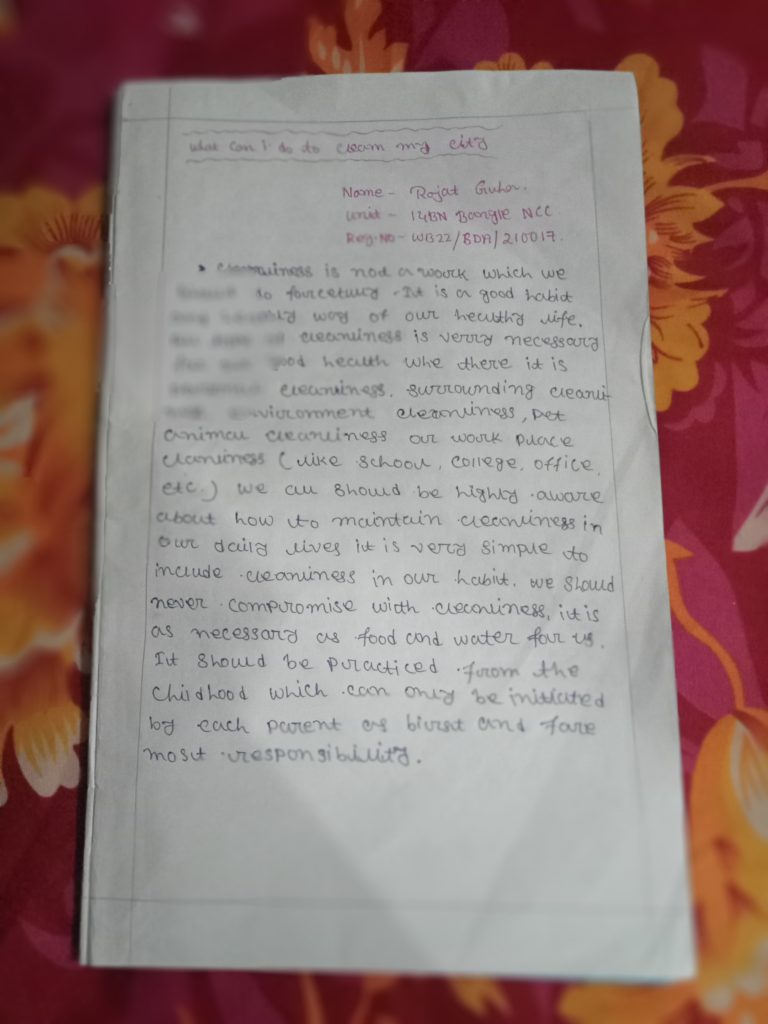 what can i do to clean my city
Name - Rajat Guha.
unit - 14BN Bangle NCC
Reg.No - WB22/BDA/210017.
cleanliness is not a work which we
to forcefully. It is a good habit
way of our healthy life.
cleanliness is verry necessary
good health whe there it is
cleanliness, surrounding cleanli-
environment cleanliness, pet
animal cleanliness our work place
clanliness (like school, college, office,
etc.) we all should be highly aware
about how to maintain cleanliness in
our daily lives it is very simple to
include cleanliness in our habit. we should
never compromise with cleanliness, it is
as necessary as food and water for us.
It should be practiced from the
childhood which can only be initiated
by each parent as birst and fore
most responsibility.